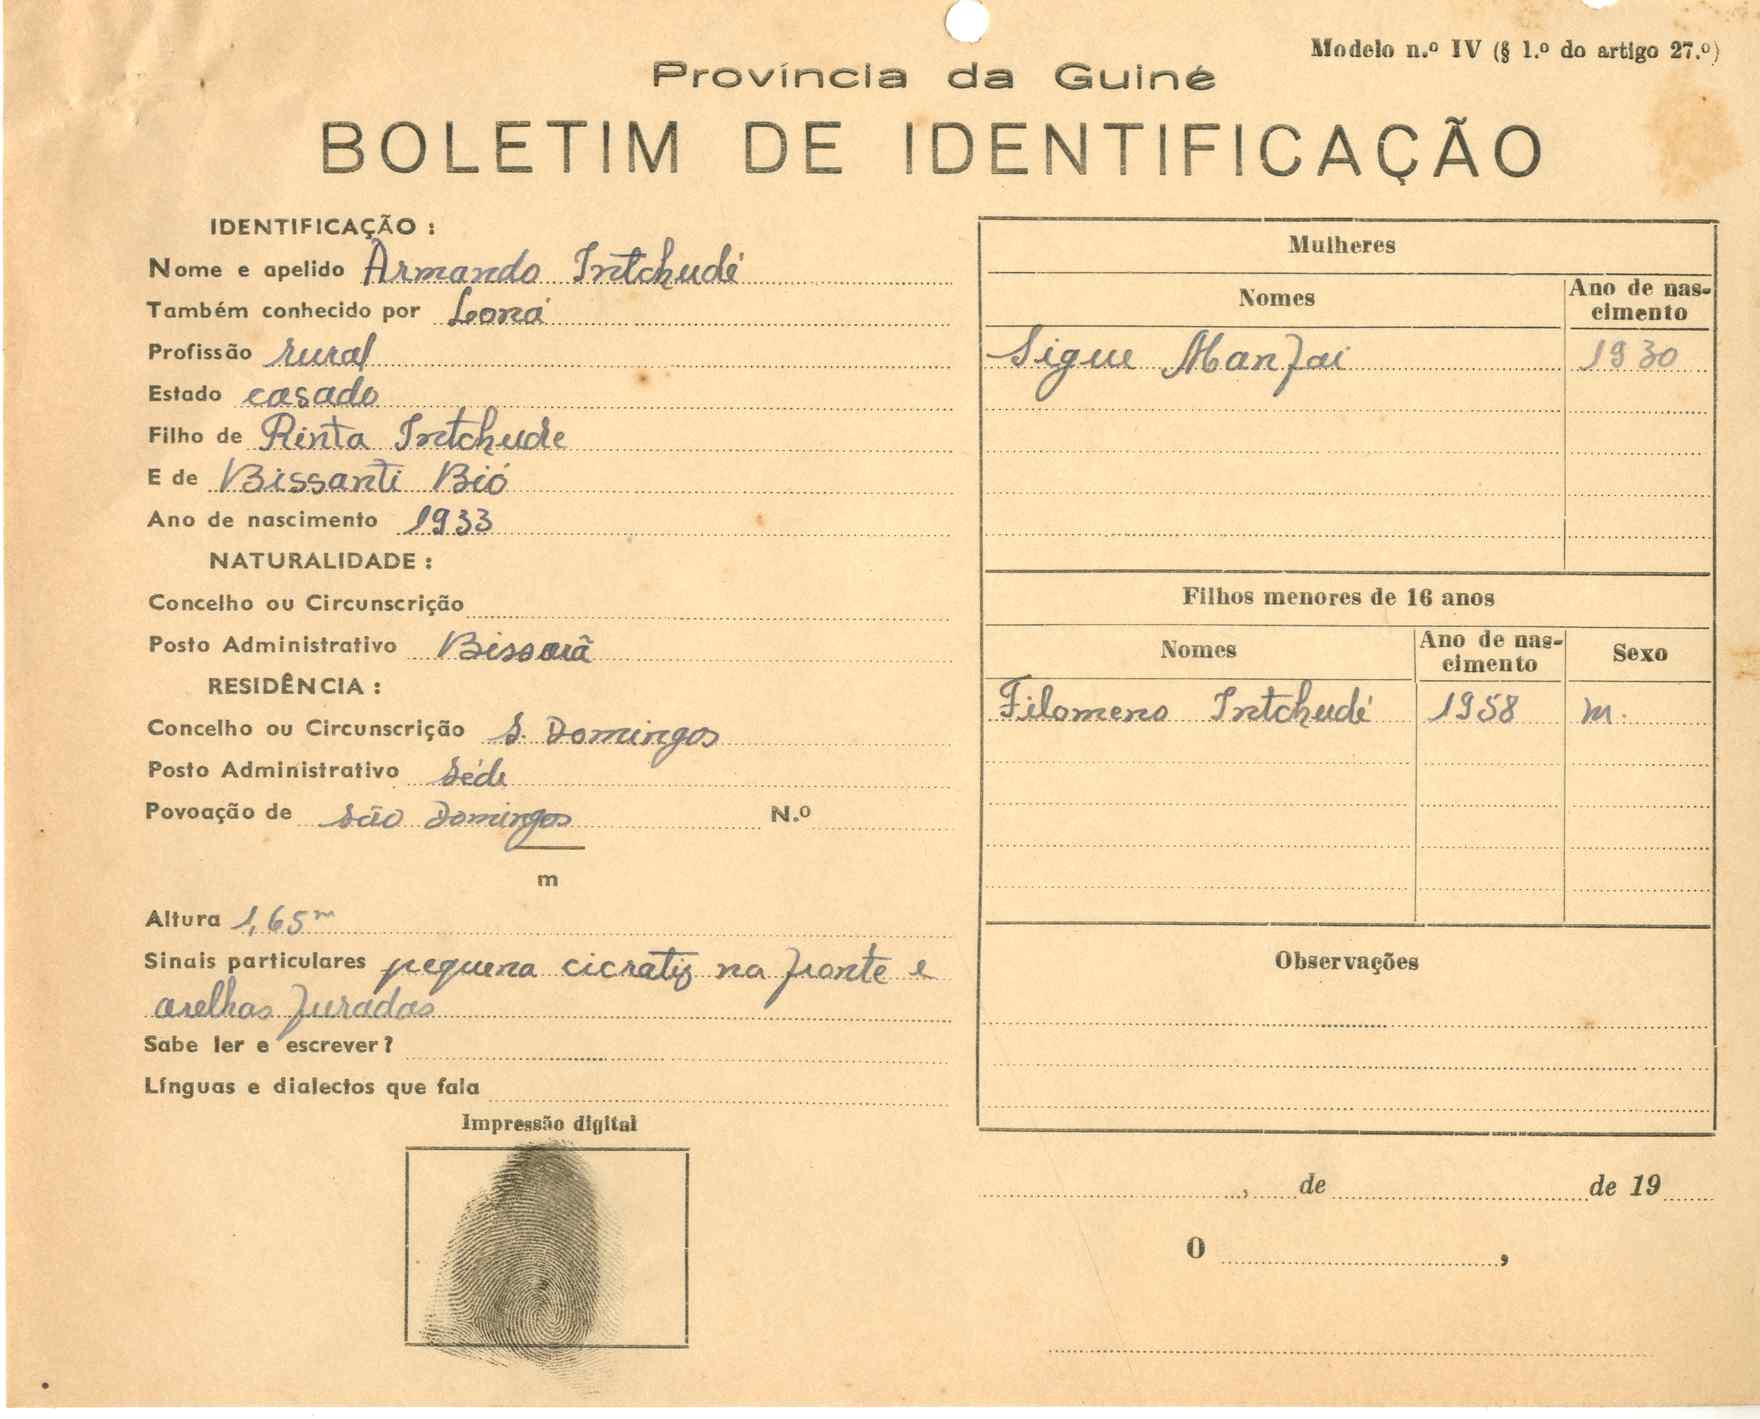 Modelo n.º IV (§ 1.º do artigo 27.º)
Província da Guiné
BOLETIM DE IDENTIFICAÇÃO
IDENTIFICAÇÃO :
Nome e apelido Armando Intchudé
Também conhecido por Loná
Profissão rural
Estado casado
Filho de Rinta Intchude
E de Bissanti Bió
Ano de nascimento 1933
NATURALIDADE :
Concelho ou Circunscrição
Posto Administrativo Bissorã
RESIDÊNCIA :
Concelho ou Circunscrição S. Domingos
Posto Administrativo Séde
Povoação de São Domingos N.º
m
Altura 1,65m
Sinais particulares pequena cicratiz na fronte e
orelhas furadas
Sabe ler e escrever?
Línguas e dialectos que fala
Impressão digital
Mulheres
Nomes Ano de nas-
cimento
Sigue Manfai 1930
Filhos menores de 16 anos
Nomes Ano de nas-
cimento Sexo
Filomeno Intchudé 1958 m.
Observações
, de de 19
O ,